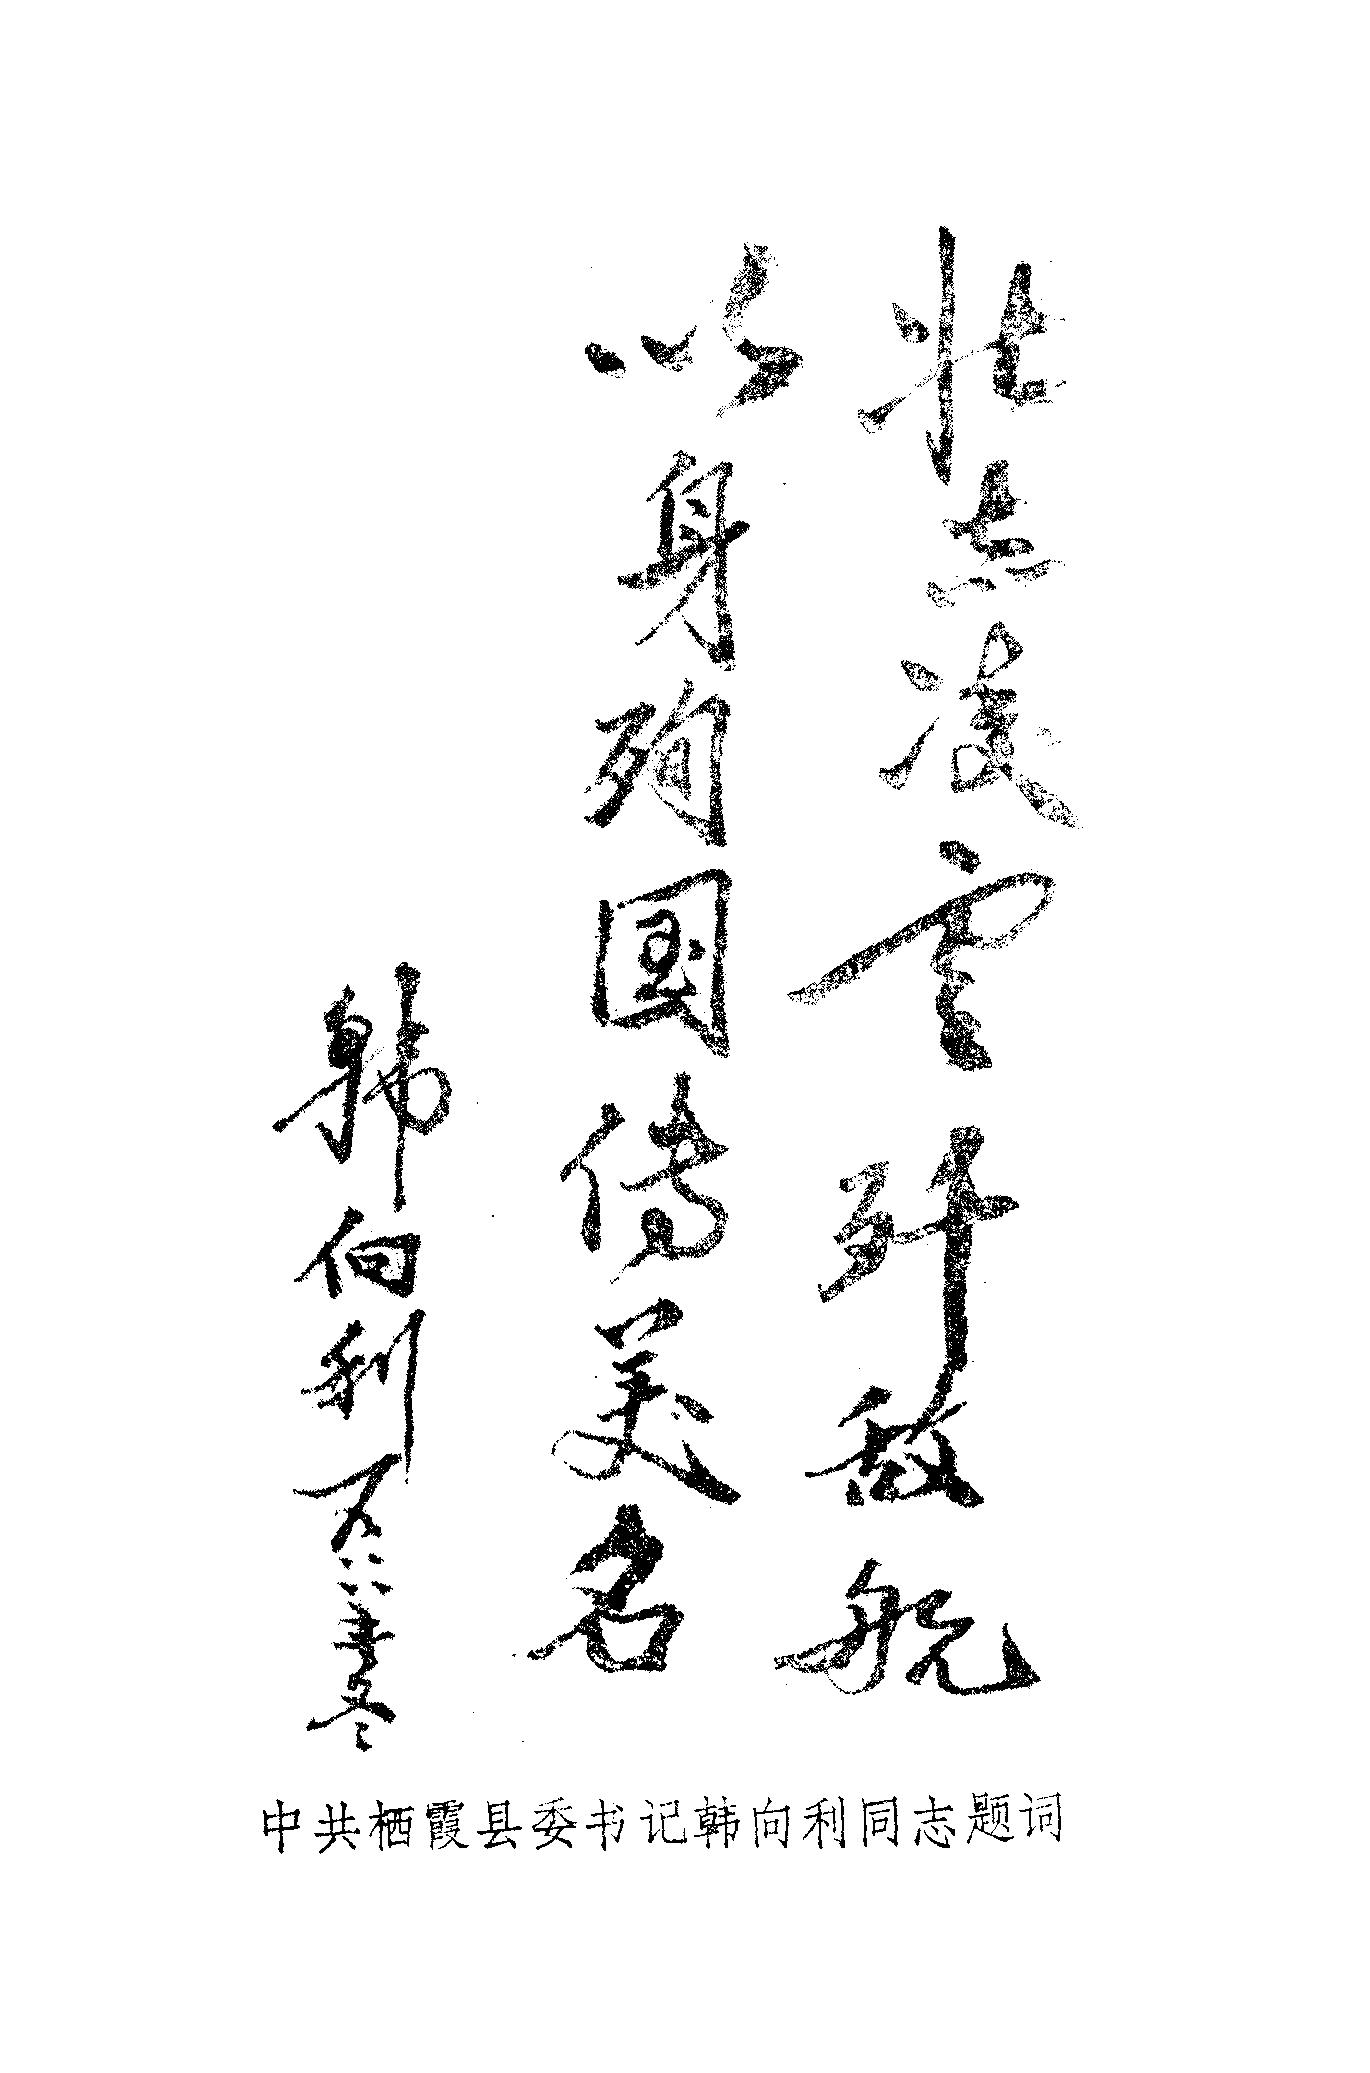 壮志凌云歼敌舰
以身殉国传美名
韩向利
冬
中共栖霞县委书记韩向利同志题词